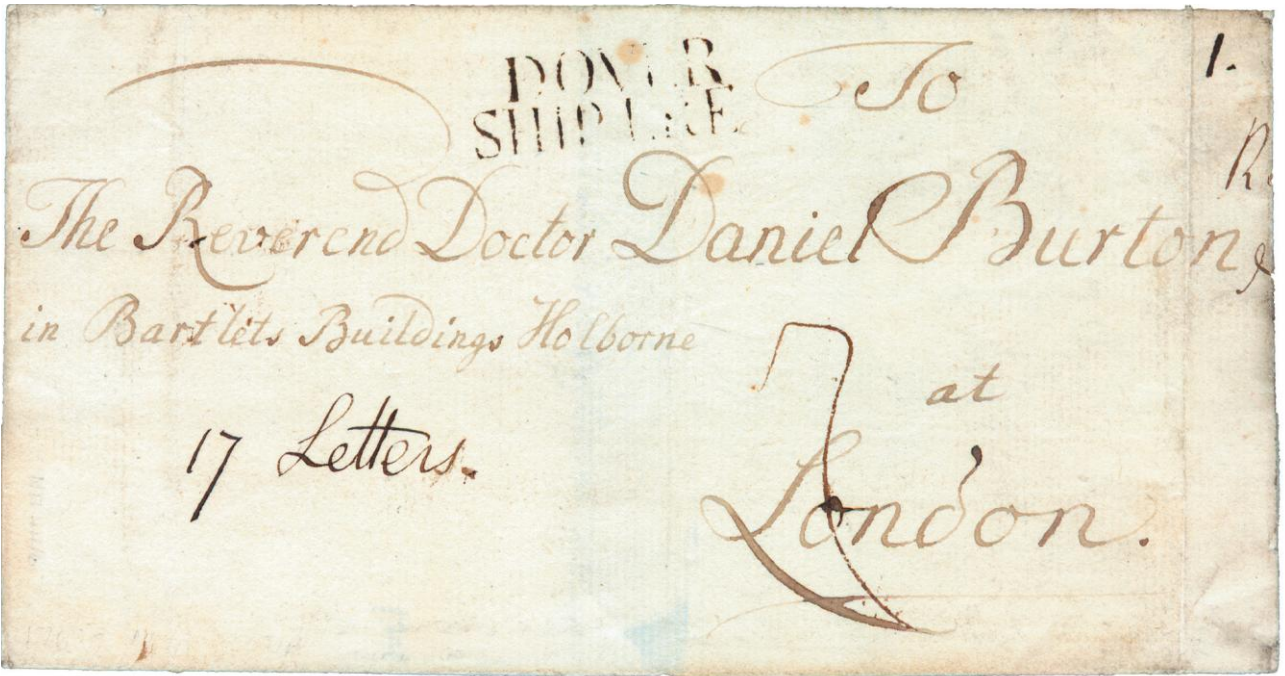 DOVER
SHIP LRE
To
The Reverend Doctor Daniel Burton
in Bartlets Buildings Holborne
at
London.
17 Letters.
7
1.